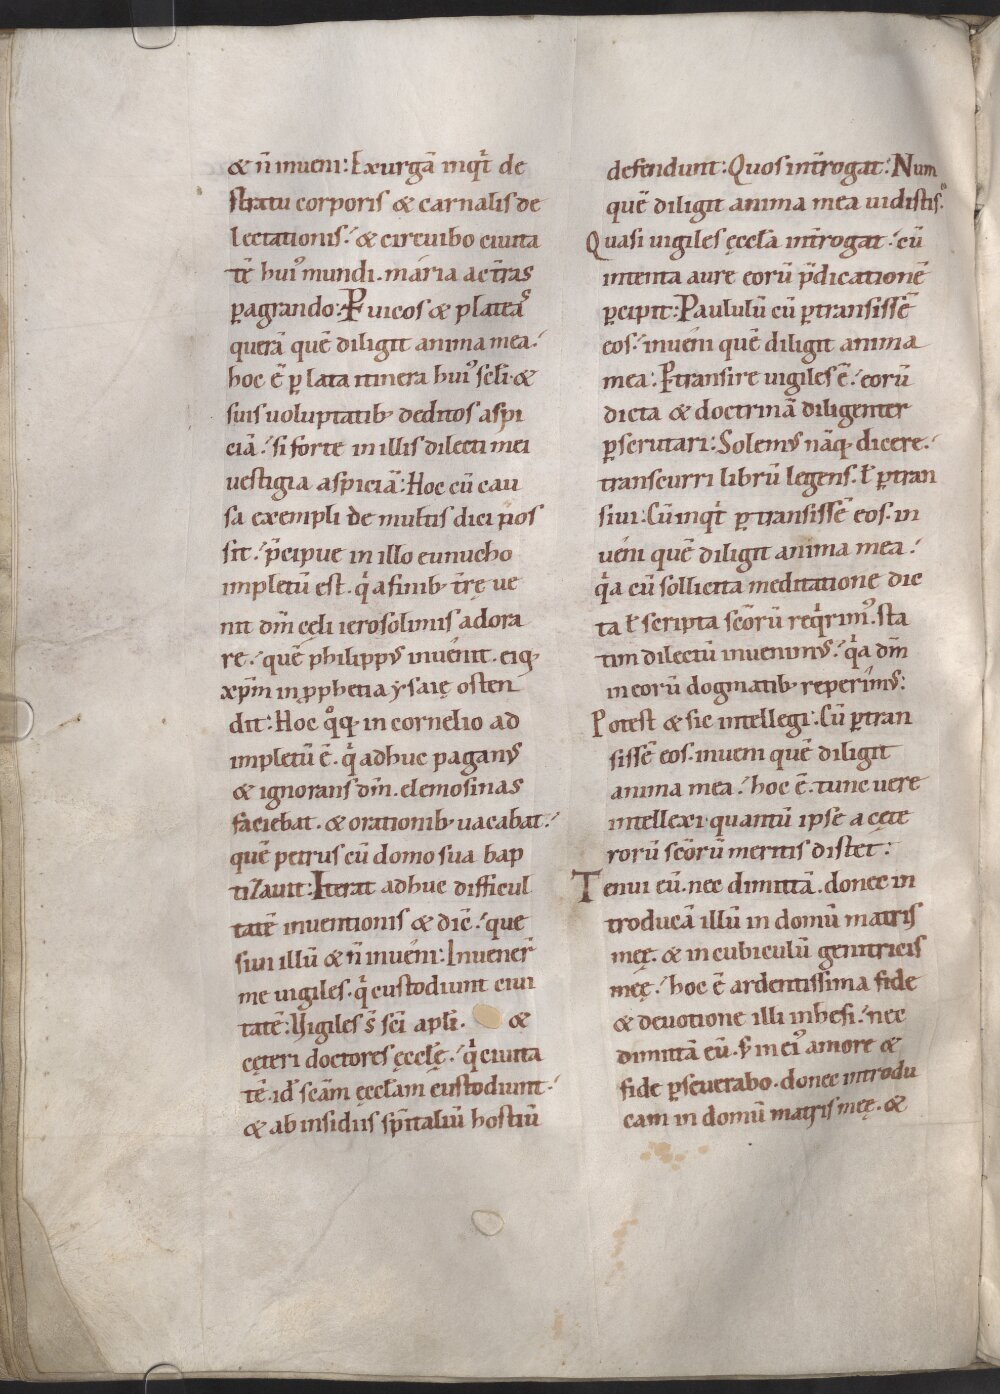 & n̄ inueni: Exurgā inqͥt de
stratu corporis & carnalis de
lectationis: & circuibo ciuita
tē huiꝰ mundi. maria ac t̄ras
ꝑagrando: Ꝑ uicos & plateaꝰ
querā quē diligit anima mea:
hoc ē ꝑ lata itinera huiꝰ scl̄i. &
suis uoluptatib; deditos aspi
ciā: si forte in illis dilecti mei
uestigia aspiciā: Hoc cū cau
sa exempli de multis dici p̄ios
sit: p̄cipue in illo eunucho
impletū est. qͥ a finib; t̄rę ue
nit dm̄ cęli ierosolimis adora
re: quē philippꝰ inuenit. eiq;
xp̄m in ꝓphetia ysaię osten
dit: Hoc qͦq; in cornelio ad
impletū ē. qͥ adhuc paganꝰ
& ignorans dm̄. elemosinas
faciebat. & orationib; uacabat:
quē petrus cū domo sua bap
tizauit: Iterat adhuc difficul
tatē inuentionis & dic̄: que
siui illū & n̄ inueni: Inuener̄
me uigiles. qͥ custodiunt ciui
tatē: Vigiles s̄ sc̄i apl̄i. &
cęteri doctores ęccl̄ę: qͥ ciuita
tē. id̄ sc̄am ęccl̄am custodiunt:
& ab insidiis sp̄italiū hostiū
defendunt: Quos int̄rogat: Num
quē diligit anima mea uidistis:
Quasi uigiles ęccl̄a int̄rogat: cū
intenta aure eorū p̄dicationē
ꝑcipit: Paululū cū ꝑtransissē
eos: inueni quē diligit anima
mea: Ꝑtransire uigiles ē: eorū
dicta & doctrinā diligenter
ꝑscrutari: Solemꝰ nāq; dicere:
transcurri librū legens. ł ꝑtran
siui: Cū inqͥt ꝑtransissē eos. in
ueni quē diligit anima mea:
qͥa cū sollicita meditatione dic
ta ł scripta sc̄orū reqͥrimꝰ. sta
tim dilectū inuenimꝰ: qͥa dm̄
in eorū dogmatib; reperimꝰ:
Potest & sic intellegi: Cū ꝑtran
sissē eos. inueni quē diligit
anima mea: hoc ē. tunc uere
intellexi quantū ipse a cęte
rorū sc̄orū meritis distet:
Tenui eū. nec dimittā. donec in
troducā illū in domū matris
meę. & in cubiculū genitricis
meę: hoc ē ardentissima fide
& deuotione illi inhesi: nec
dimittā eū. s; in eiꝰ amore &
fide ꝑseuerabo. donec introdu
cam in domū matris meę. &